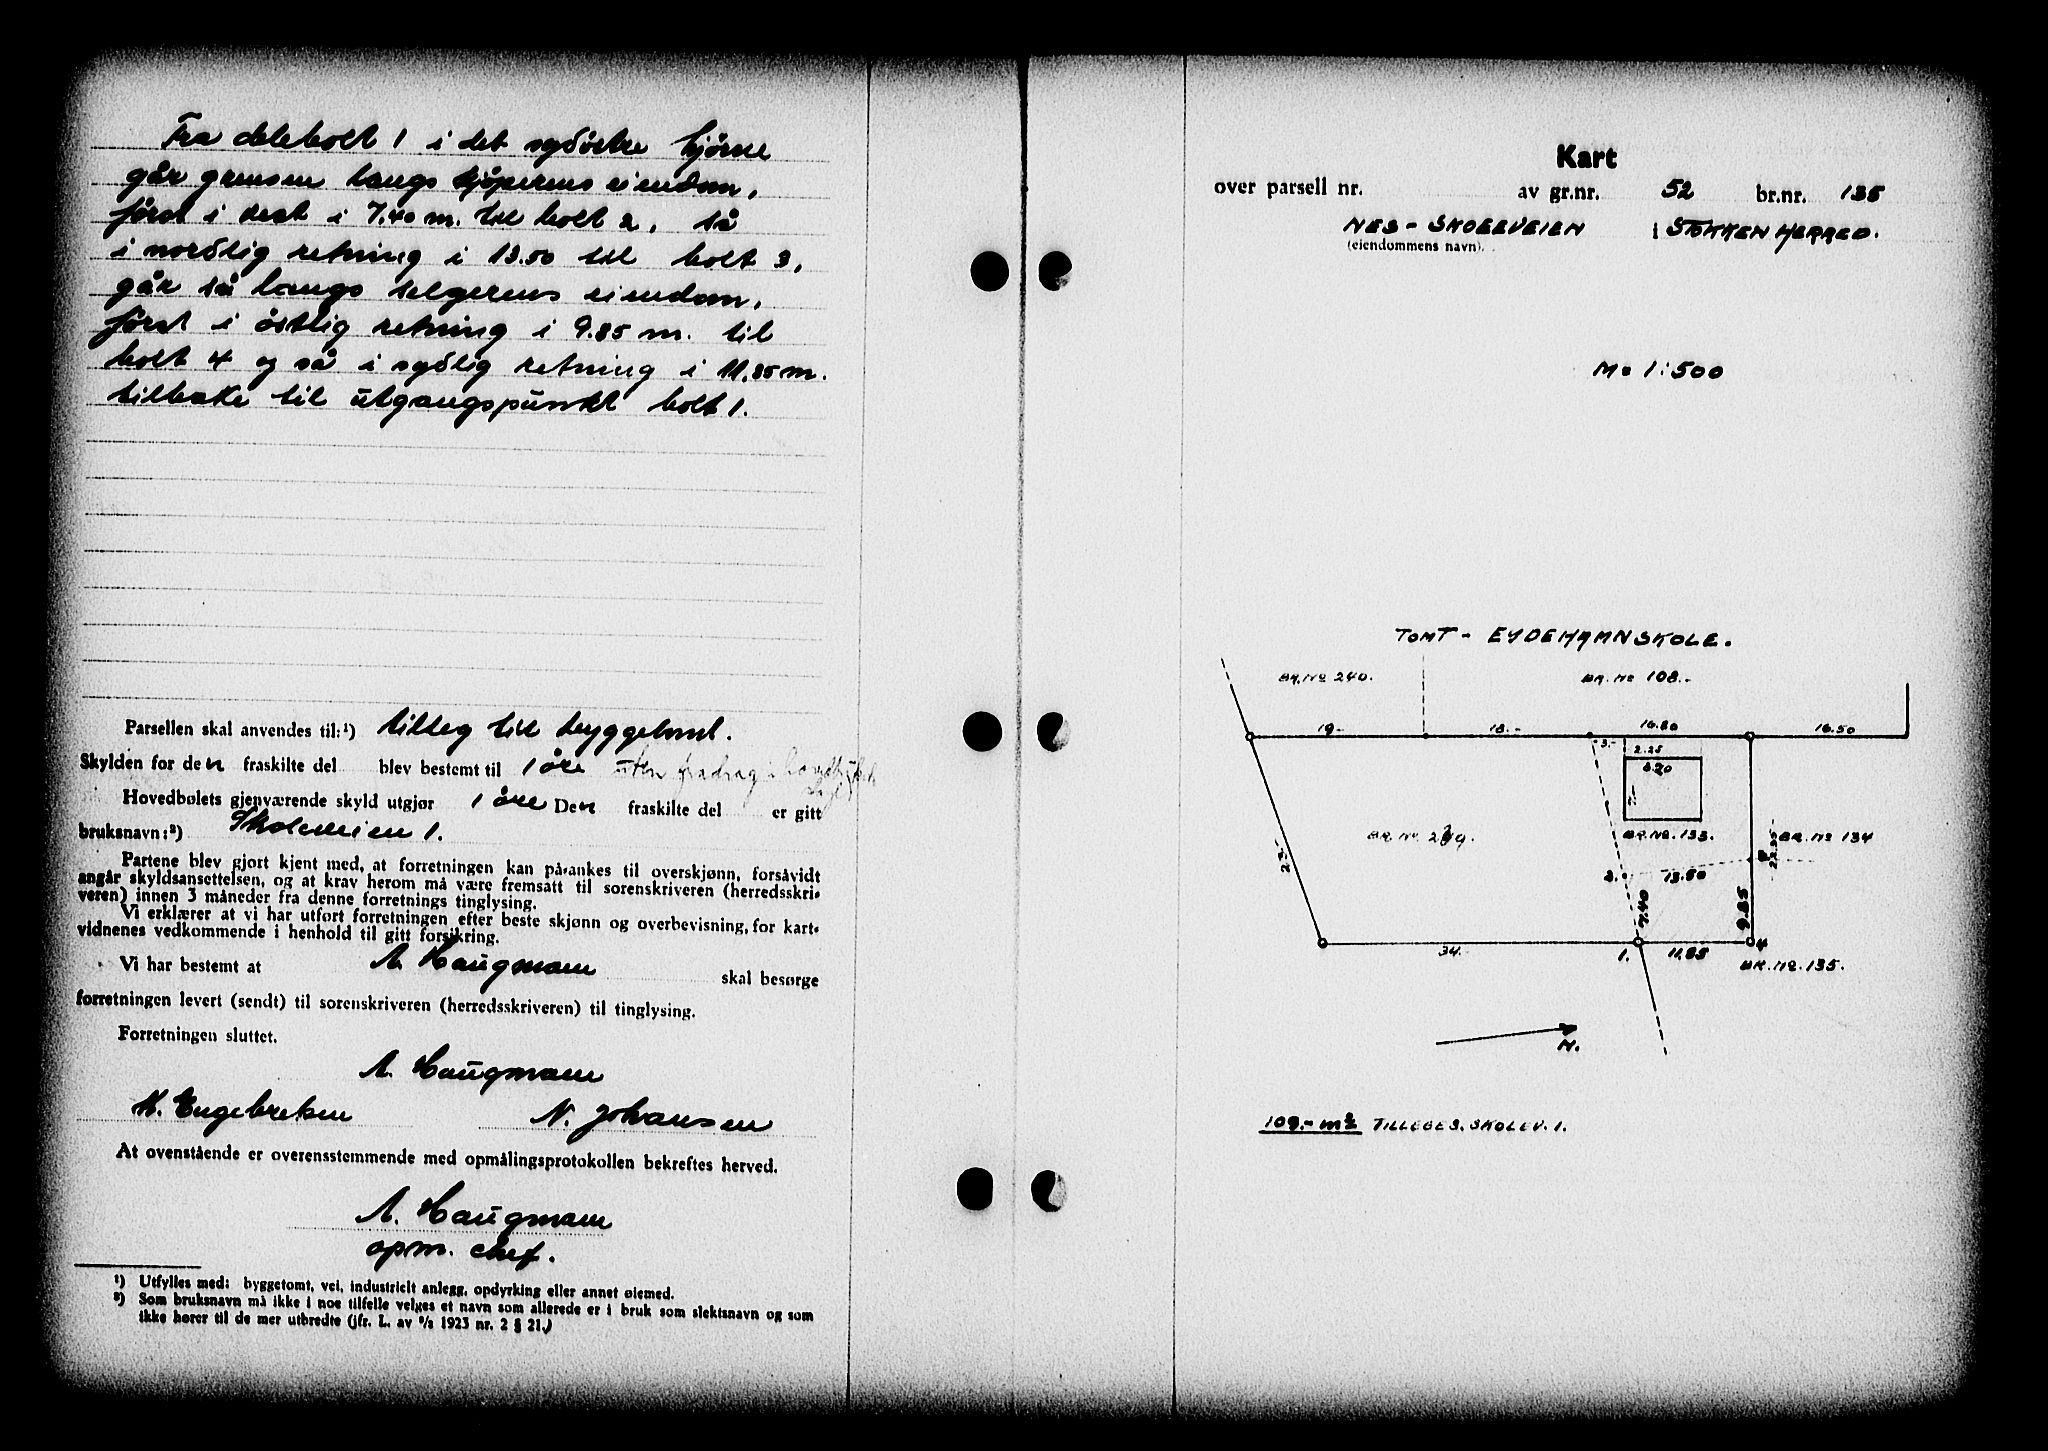 Fra delebolt 1 i det sydöstre hjörne
går grensen langs kjöperens eiendom,
först i vest i 7.40 m. til bolt 2, så
i nordlig retning i 13.50 til bolt 3,
går så langs selgerens eiendom,
först i östlig retning i 9.85 m. til
bolt 4 og så i sydlig retning i 11.85 m.
tilbake til utgangspunkt bolt 1.
Parsellen skal anvendes til:¹) tilleg til byggetomt.
Skylden for den fraskilte del blev bestemt til 1 øre uten fradrag i
Hovedbølets gjenværende skyld utgjør 1 øre Den fraskilte del er gitt
bruksnavn:²) Skoleveien 1.
Partene blev gjort kjent med, at forretningen kan på-ankes til overskjønn, forsåvidt
angår skyldsansettelsen, og at krav herom må være fremsatt til sorenskriveren (herredsskri-
veren) innen 3 måneder fra denne forretnings tinglysing.
Vi erklærer at vi har utført forretningen efter beste skjønn og overbevisning, for kart-
vidnenes vedkommende i henhold til gitt forsikring.
Vi har bestemt at A. Haugmann skal besørge
forretningen levert (sendt) til sorenskriveren (herredsskriveren) til tinglysing.
Forretningen sluttet.
A. Haugmann
K. Engebretsen N. Johansen
At ovenstående er overensstemmende med opmålingsprotokollen bekreftes herved.
A. Haugmann
opm. chef.
¹) Utfylles med: byggetomt, vei, industrielt anlegg, opdyrking eller annet øiemed.
²) Som bruksnavn må ikke i noe tilfelle velges et navn som allerede er i bruk som slektsnavn og som
ikke hører til de mer utbredte (jfr. L. av ⁹/₂ 1923 nr. 2 § 21.)
Kart
over parsell nr. av gr.nr. 52 br.nr. 135
NES - SKOLEVEIEN i STOKKEN HERRED.
(eiendommens navn)
M= 1:500
TOMT - EYDEHAMN SKOLE.
BR. No 240. BR. No 108.-
19- 18.- 16.80 16.50
3.- 2.25
8.20
7.-
BR. No. 249. BR. No. 133. BR. No 134
27.- 22.35
2. 13.50
7.40 9.85
34. 1. 11.85 4
BR. No. 135.
N.
109.- m² TILLEGG S. SKOLEV. 1.